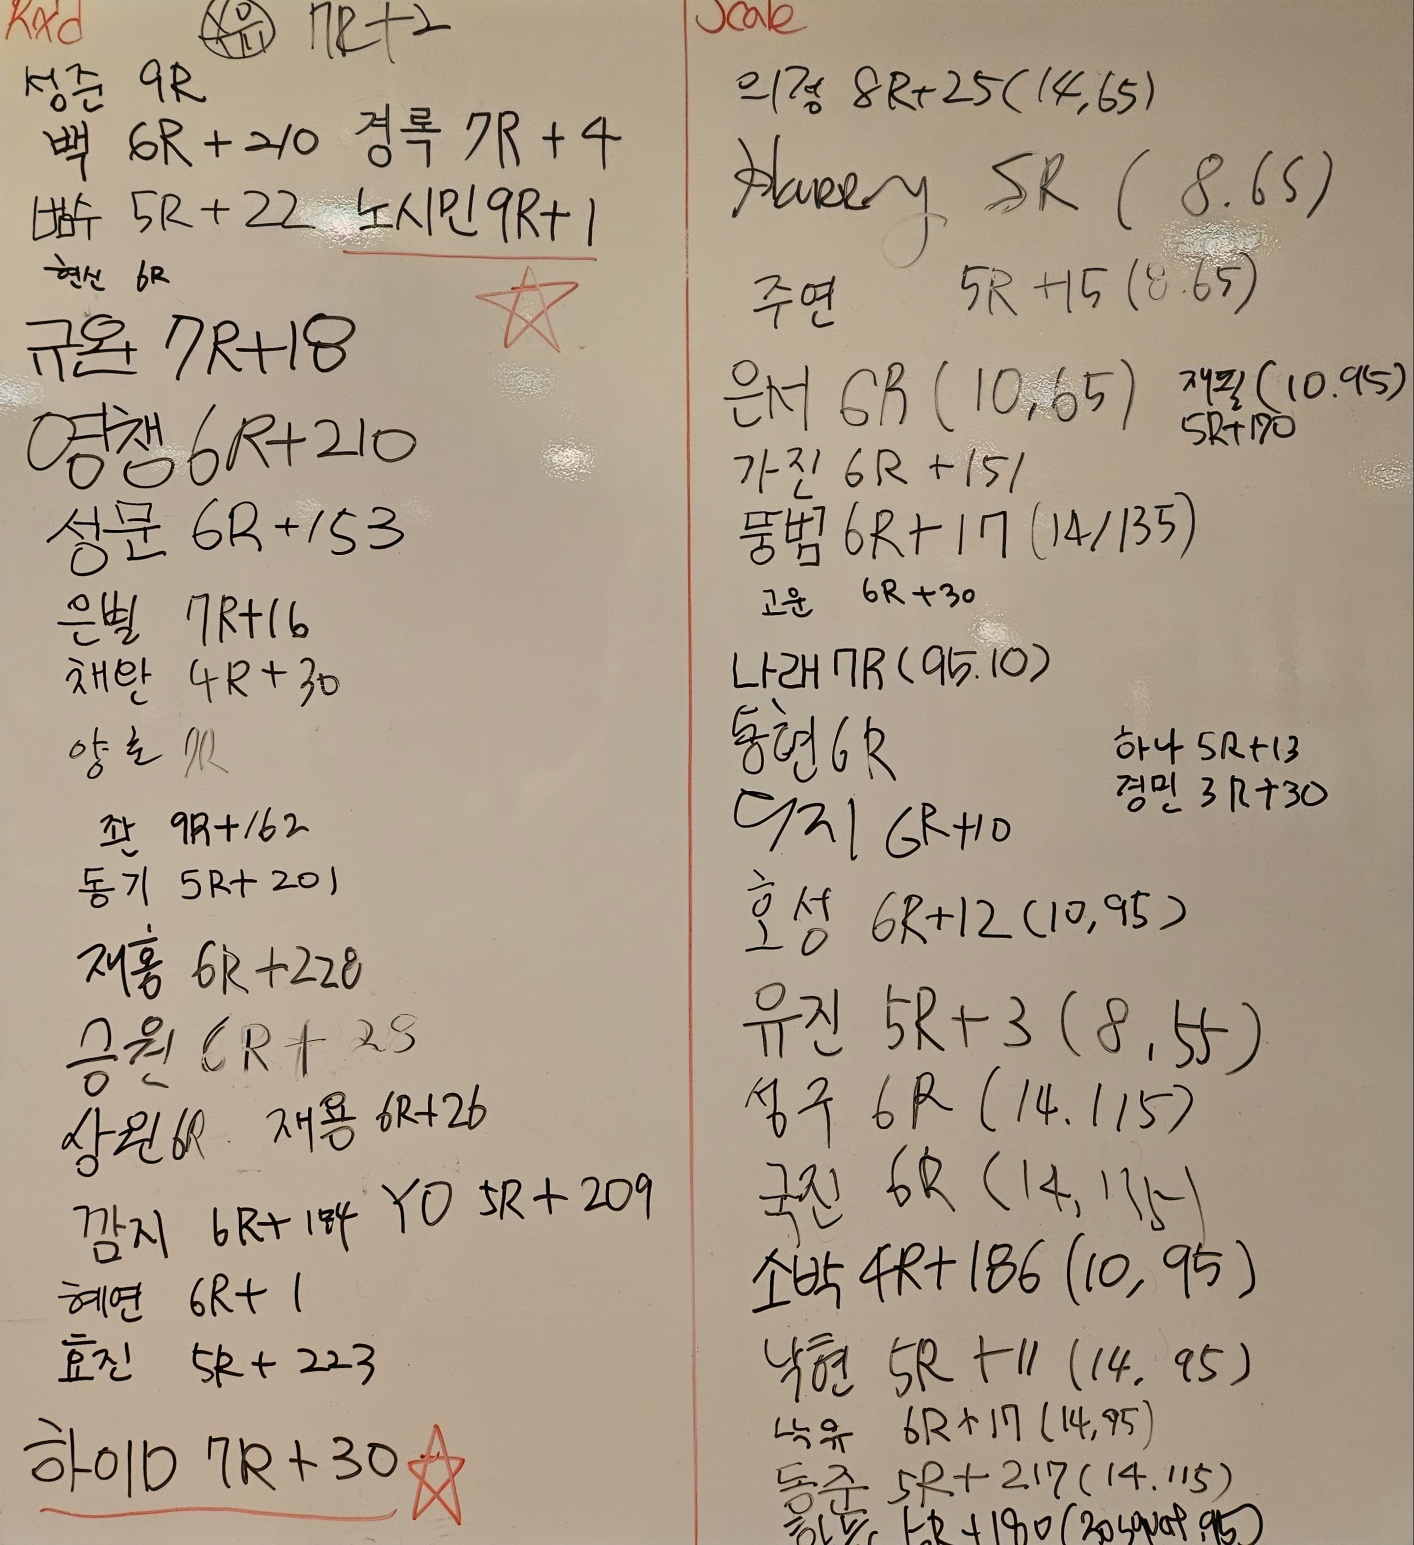 Rxd
윤 7R+2
성준 9R
백 6R+210 경록 7R+4
범수 5R+22 노시민 9R+1
현신 6R
규온 7R+18
영잼 6R+210
성문 6R+153
은별 7R+16
채완 4R+30
양호 7R
좌 9R+162
동기 5R+201
재홍 6R+228
승원 6R+28
상원 6R 재용 6R+26
깜지 6R+184 YO 5R+209
혜연 6R+1
효진 5R+223
하이D 7R+30
Scale
의정 8R+25(14,65)
Harry 5R (8.65)
주연 5R+15(8.65)
은서 6R(10,65) 재필(10.95)
5R+170
가진 6R+151
뚱범 6R+17(14/135)
고운 6R+30
나래 7R(95.10)
동현 6R 하나 5R+13
경민 3R+30
디지 6R+10
호성 6R+12(10,95)
유진 5R+3(8,55)
성구 6R(14.115)
국진 6R(14,135)
소박 4R+186(10,95)
낙현 5R+11(14.95)
녹유 6R+17(14,95)
동준 5R+217(14.115)
5R+180